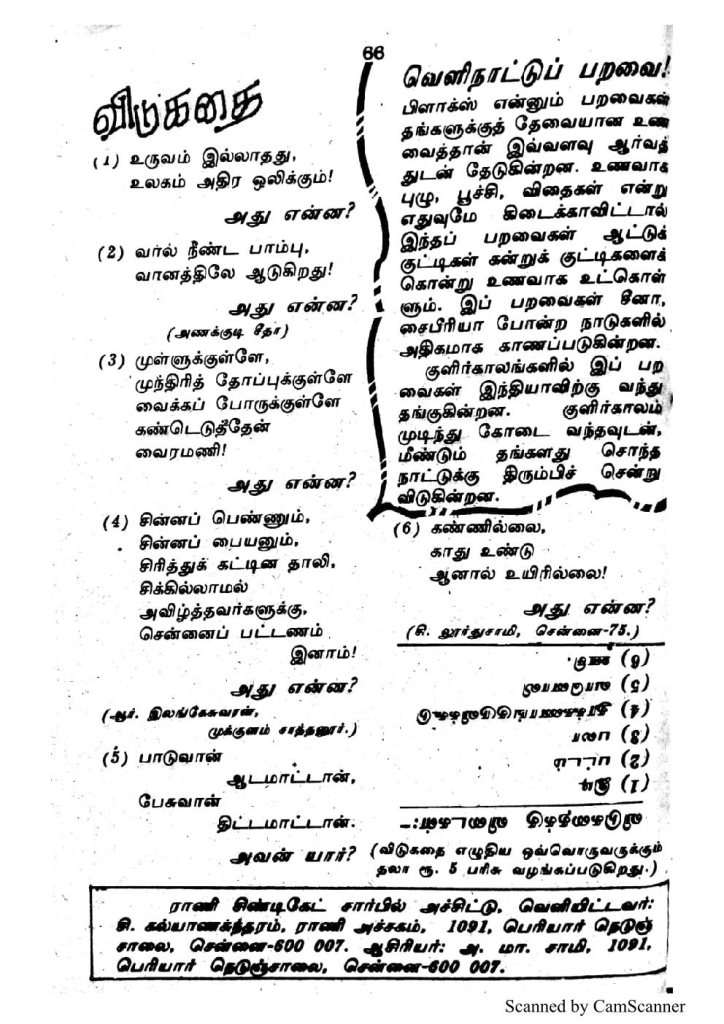 66
விடுகதை
(1) உருவம் இல்லாதது,
உலகம் அதிர ஒலிக்கும்!
அது என்ன?
(2) வால் நீண்ட பாம்பு,
வானத்திலே ஆடுகிறது!
அது என்ன?
(அணக்குடி சீதா)
(3) முள்ளுக்குள்ளே,
முந்திரித் தோப்புக்குள்ளே
வைக்கப் போருக்குள்ளே
கண்டெடுதீதேன்
வைரமணி!
அது என்ன?
(4) சின்னப் பெண்ணும்,
சின்னப் பையனும்,
சிரித்துக் கட்டின தாலி,
சிக்கில்லாமல்
அவிழ்த்தவர்களுக்கு,
சென்னைப் பட்டணம்
இனாம்!
அது என்ன?
(ஆர். இலங்கேசுவரன்,
முக்குளம் சாத்தனூர்.)
(5) பாடுவான்
ஆடமாட்டான்,
பேசுவான்
திட்டமாட்டான்.
அவன் யார்?
வெளிநாட்டுப் பறவை!
பிளாக்ஸ் என்னும் பறவைகள்
தங்களுக்குத் தேவையான உண
வைத்தான் இவ்வளவு ஆர்வத்
துடன் தேடுகின்றன. உணவாக
புழு, பூச்சி, விதைகள் என்று
எதுவுமே கிடைக்காவிட்டால்
இந்தப் பறவைகள் ஆட்டுக்
குட்டிகள் கன்றுக் குட்டிகளைக்
கொன்று உணவாக உட்கொள்
ளும். இப் பறவைகள் சீனா,
சைபீரியா போன்ற நாடுகளில்
அதிகமாக காணப்படுகின்றன.
குளிர்காலங்களில் இப் பற
வைகள் இந்தியாவிற்கு வந்து
தங்குகின்றன. குளிர்காலம்
முடிந்து கோடை வந்தவுடன்,
மீண்டும் தங்களது சொந்த
நாட்டுக்கு திரும்பிச் சென்று
விடுகின்றன.
(6) கண்ணில்லை,
காது உண்டு
ஆனால் உயிரில்லை!
அது என்ன?
(கி. லூர்துசாமி, சென்னை-75.)
விடுகதைக்கு விடைகள்:—
(1) இடி
(2) பட்டம்
(3) பலா
(4)
(5) வானொலி
(6) ஊசி
(விடுகதை எழுதிய ஒவ்வொருவருக்கும்
தலா ரூ. 5 பரிசு வழங்கப்படுகிறது.)
ராணி சிண்டிகேட் சார்பில் அச்சிட்டு, வெளியிட்டவர்:
கி. கல்யாணசுந்தரம், ராணி அச்சகம், 1091, பெரியார் நெடுஞ்
சாலை, சென்னை-600 007. ஆசிரியர்: அ. மா. சாமி, 1091,
பெரியார் நெடுஞ்சாலை, சென்னை-600 007.
Scanned by CamScanner